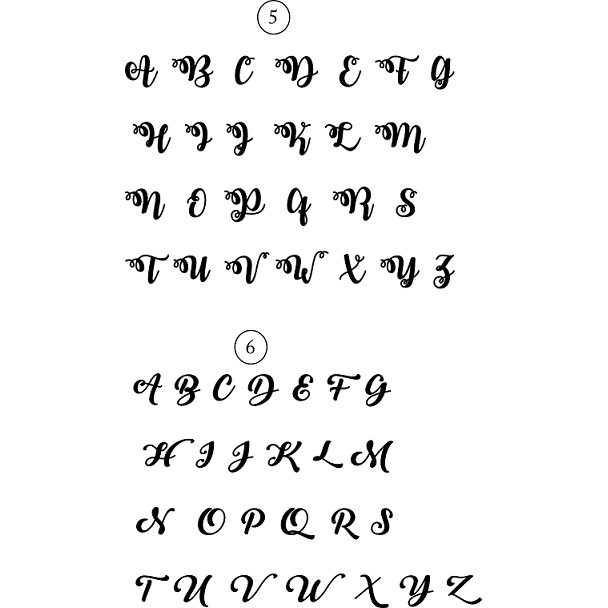 5
A B C D E F G
H I J K L M
N O P Q R S
T U V W X Y Z
6
A B C D E F G
H I J K L M
N O P Q R S
T U V W X Y Z